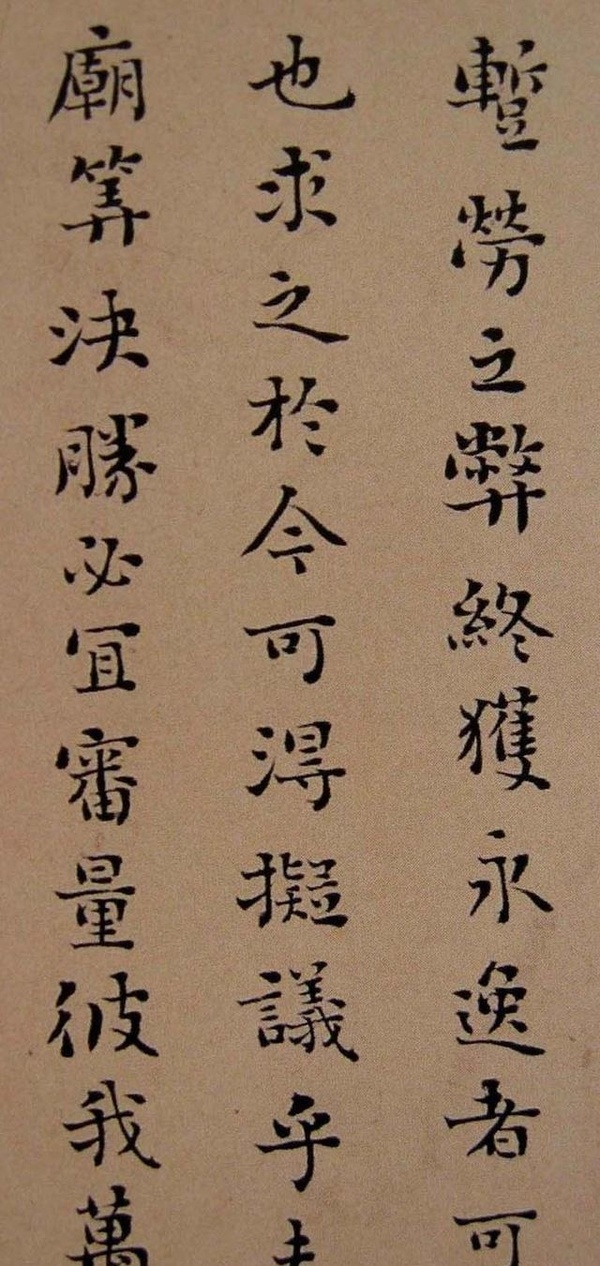 暫勞之弊終獲永逸者可
也求之於今可得擬議乎夫
廟筭決勝必宜審量彼我萬